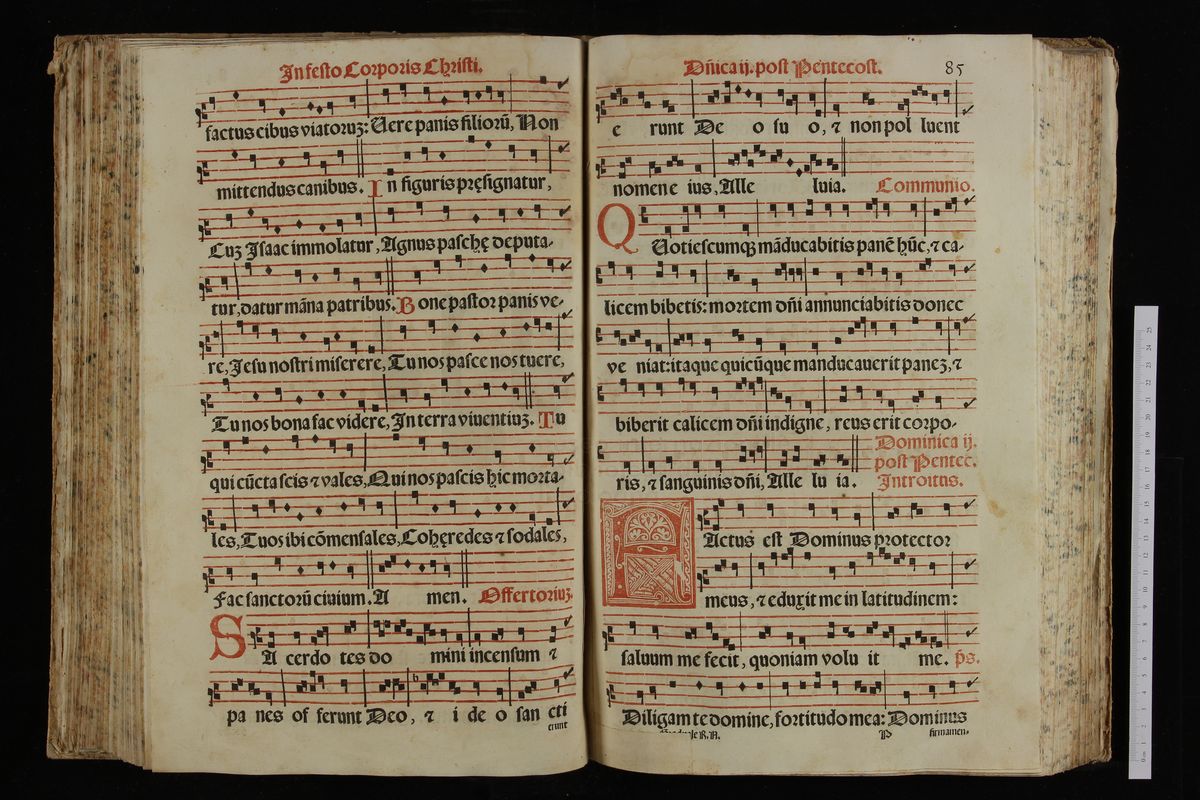 In festo Corporis Christi.
factus cibus viatoruʒ: Uere panis filiorũ, Non
mittendus canibus. In figuris pręsignatur,
Cuʒ Isaac immolatur, Agnus paschę deputa-
tur, datur mãna patribus. Bone pastor panis ve-
re, Jesu nostri miserere, Tu nos pasce nos tuere,
Tu nos bona fac videre, In terra viuentiuʒ. Tu
qui cũcta scis ⁊ vales, Qui nos pascis hic morta-
les, Tuos ibi cõmensales, Cohęredes ⁊ sodales,
Fac sanctorũ ciuium. A men. Offertoriuʒ.
SA cerdo tes do mini incensum ⁊
pa nes of ferunt Deo, ⁊ i de o san cti
erunt
Dñica ij. post Pentecost. 85
e runt De o su o, ⁊ non pol luent
nomen e ius, Alle luia. Communio.
QUotiescumqʒ mãducabitis panẽ hũc, ⁊ ca-
licem bibetis: mortem dñi annunciabitis donec
ve niat: itaque quicũque manducauerit paneʒ, ⁊
biberit calicem dñi indigne, reus erit corpo-
ris, ⁊ sanguinis dñi, Alle lu ia.
Dominica ij.
post Pentec.
Introitus.
FActus est Dominus protector
meus, ⁊ eduxit me in latitudinem:
saluum me fecit, quoniam volu it me. p̃s.
Diligam te domine, fortitudo mea: Dominus
P firmamen-
0 cm 1 2 3 4 5 6 7 8 9 10 11 12 13 14 15 16 17 18 19 20 21 22 23 24 25